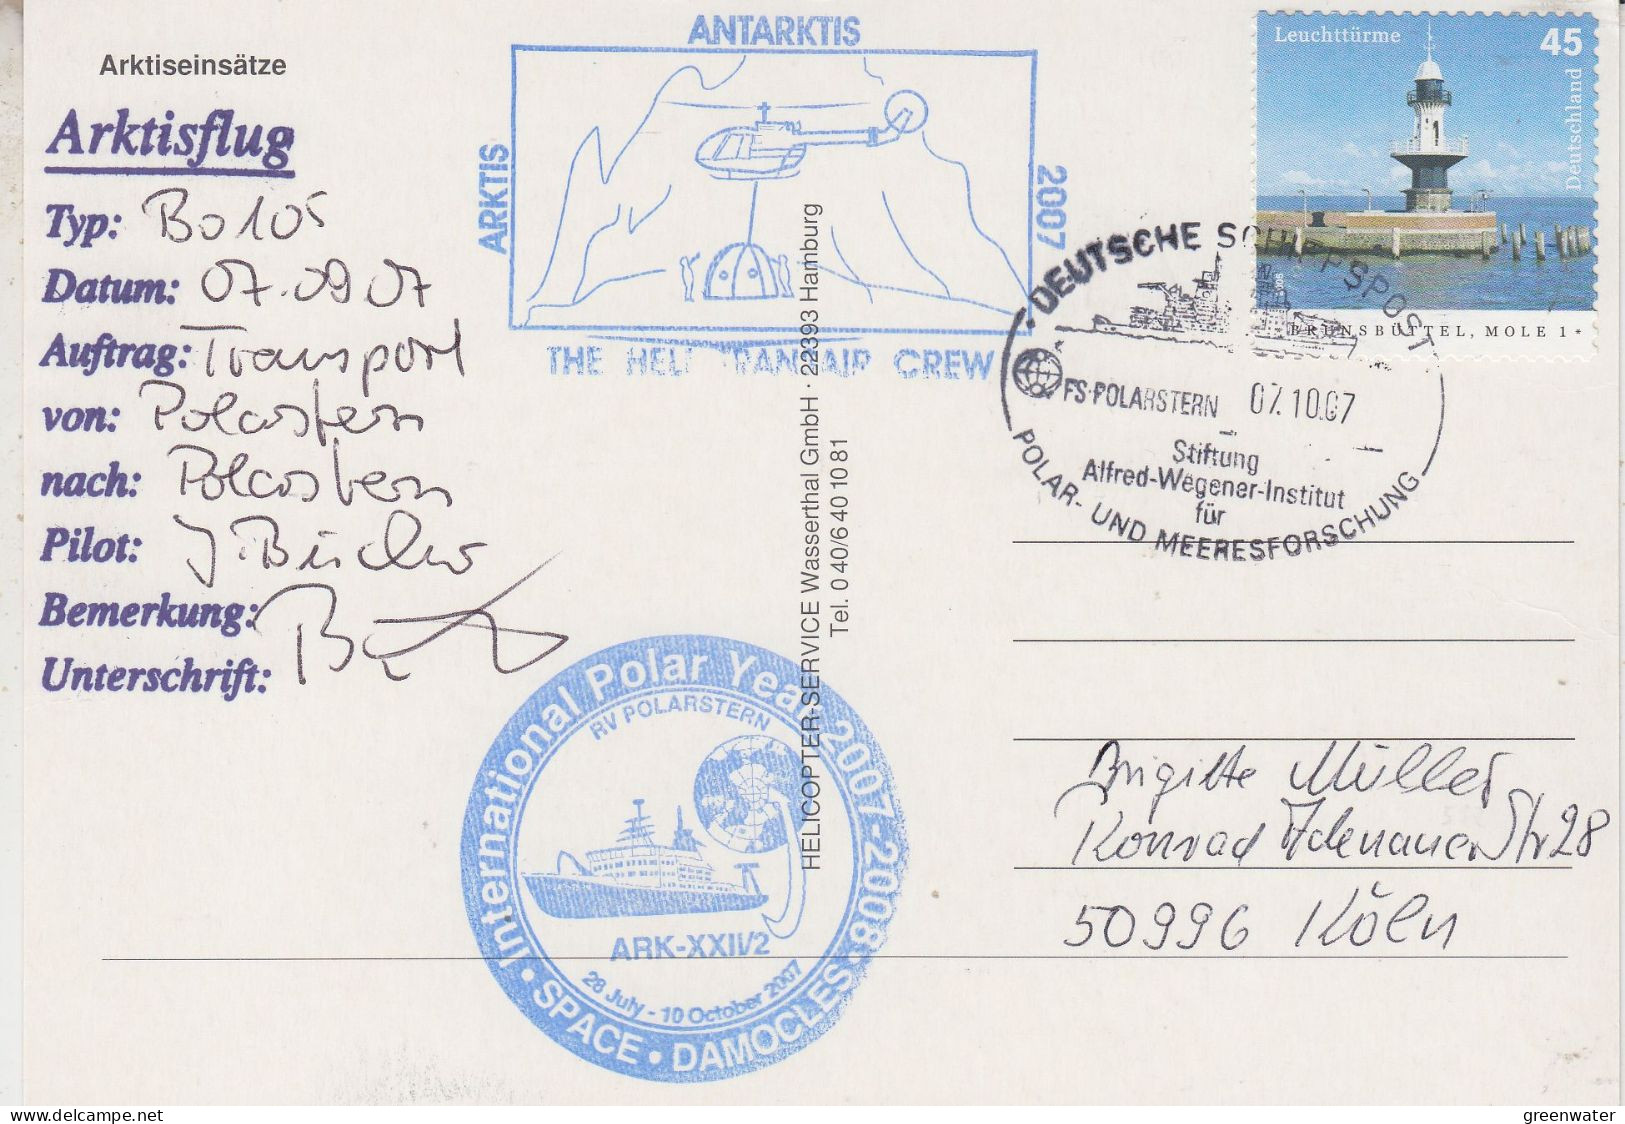 Arktiseinsätze
Arktisflug
Typ: Bo 105
Datum: 07.09 07
Auftrag: Transport
von: Polarstern
nach: Polarstern
Pilot: J.
Bemerkung:
Unterschrift:
ANTARKTIS
ARKTIS
2007
THE HELI TRANSAIR CREW
HELICOPTER-SERVICE Wasserthal GmbH · 22393 Hamburg
Tel. 0 40/6 40 10 81
Leuchttürme 45
Deutschland
BRUNSBÜTTEL, MOLE 1
DEUTSCHE SCHIFFSPOST
FS·POLARSTERN 07.10.07
Stiftung
Alfred-Wegener-Institut
für
POLAR- UND MEERESFORSCHUNG
International Polar Year 2007-2008
RV POLARSTERN
ARK-XXII/2
28 July - 10 October 2007
SPACE • DAMOCLES
Brigitte Müller
Konrad Adenauer Str 28
50996 Köln
delcampe.net
greenwater